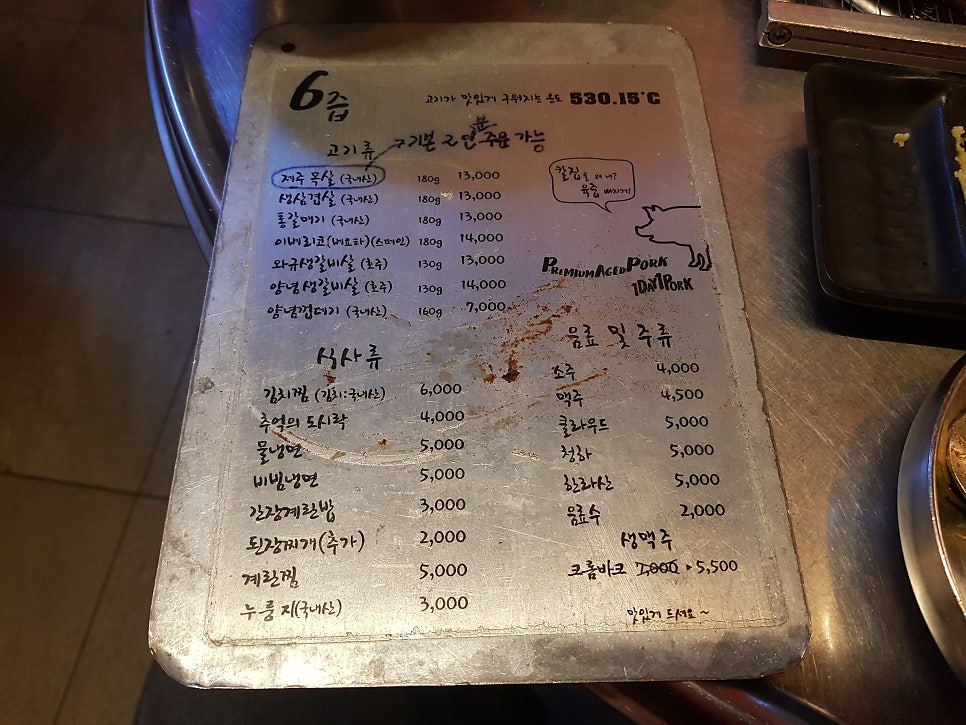 6즙
고기가 맛있게 구워지는 온도 530.15°C
고기류
기본 2인분 주문 가능
제주 목살 (국내산) 180g 13,000
생삼겹살 (국내산) 180g 13,000
통갈매기 (국내산) 180g 13,000
이베리코(베요타)(스페인) 180g 14,000
와규생갈비살 (호주) 130g 13,000
양념생갈비살 (호주) 130g 14,000
양념껍데기 (국내산) 160g 7,000
칼집을 왜 내?
육즙 빠지게!
PREMIUM AGED PORK
1DAY1PORK
식사류
김치찜 (김치:국내산) 6,000
추억의 도시락 4,000
물냉면 5,000
비빔냉면 5,000
간장계란밥 3,000
된장찌개(추가) 2,000
계란찜 5,000
누룽지(국내산) 3,000
음료 및 주류
소주 4,000
맥주 4,500
클라우드 5,000
청하 5,000
한라산 5,000
음료수 2,000
생맥주
크롬바크 7,000 5,500
맛있게 드세요~